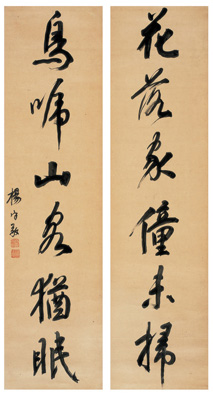 花落家僮未掃
鳥啼山客猶眠
楊守敬